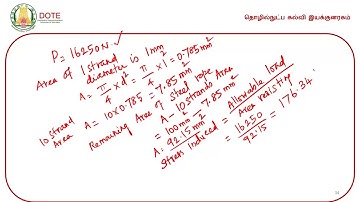 DOTE
தொழில்நுட்பக் கல்வி இயக்குனரகம்
P = 16250 N. ✓
Area of 1 strand
diameter is 1 mm
A = π/4 × d² = π/4 × 1² = 0.785 mm²
10 strand Area A = 10 × 0.785 = 7.85 mm²
Remaining Area of steel rope
A - 10 strands Area
= 100 mm² - 7.85 mm²
A = 92.15 mm²
Stress induced = Allowable load / Area resisting
= 16250 / 92.15 = 176.34